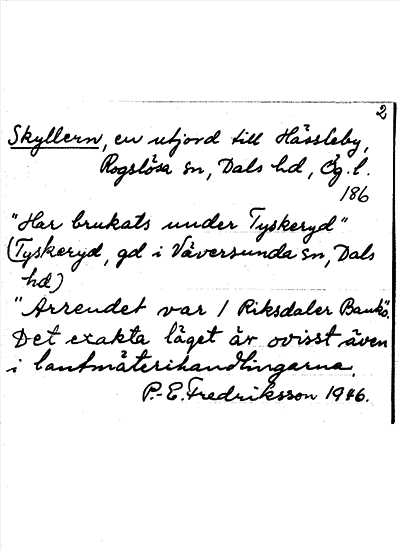 2
Skyllern, en utjord till Hässleby,
Rogslösa sn, Dals hd, Ög. l.
186
"Har brukats under Tyskeryd"
(Tyskeryd, gd i Väversunda sn, Dals
hd)
"Arrendet var 1 Riksdaler Banko.
Det exakta läget är ovisst även
i lantmäterihandlingarna.
P.-E. Fredriksson 1946.